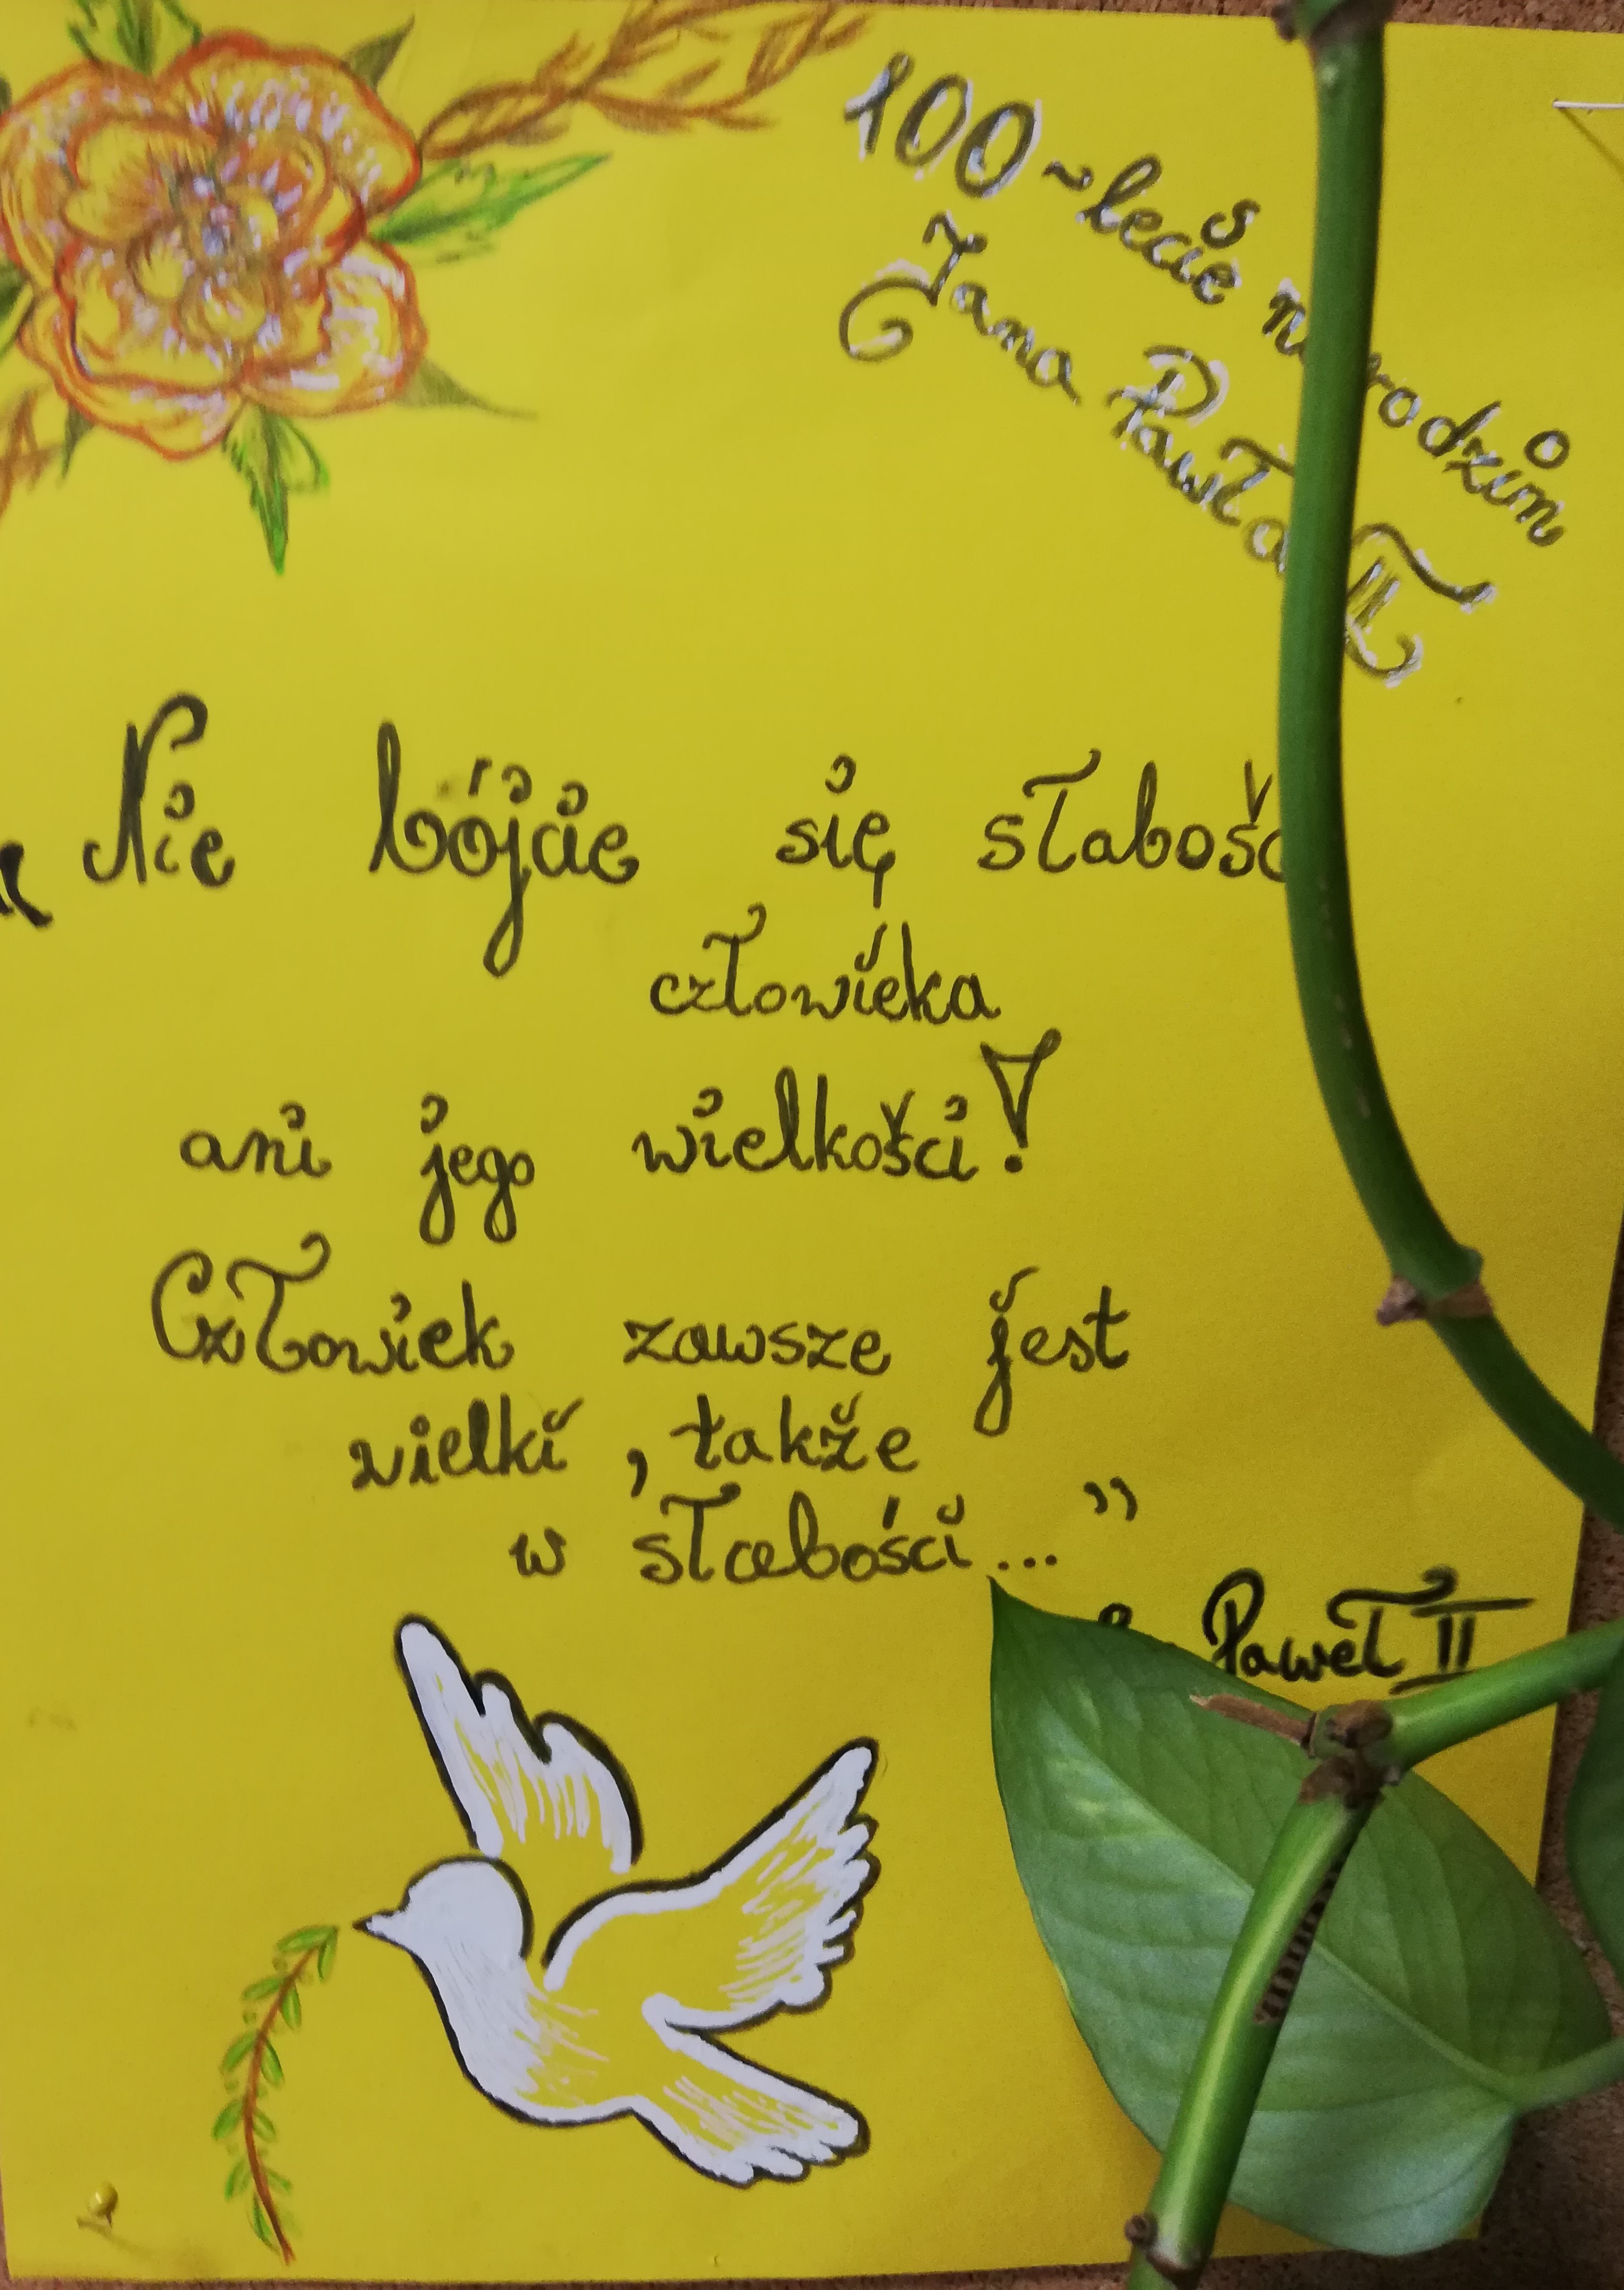 100-lecie narodzin
Jana Pawła II
„Nie bójcie się słabośc
człowieka
ani jego wielkości!
Człowiek zawsze jest
wielki, także
w słabości..."
Paweł II